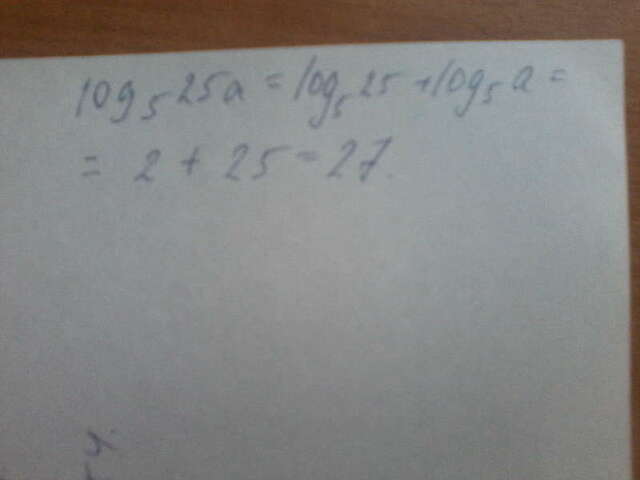 log₅25a = log₅25 + log₅a =
= 2 + 25 = 27.